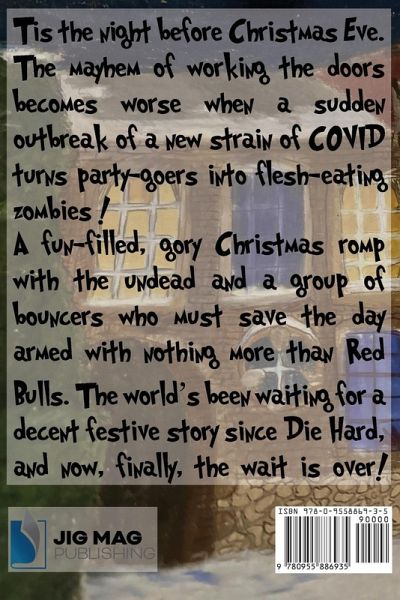 Tis the night before Christmas Eve.
The mayhem of working the doors
becomes worse when a sudden
outbreak of a new strain of COVID
turns party-goers into flesh-eating
zombies!
A fun-filled, gory Christmas romp
with the undead and a group of
bouncers who must save the day
armed with nothing more than Red
Bulls. The world's been waiting for a
decent festive story since Die Hard,
and now, finally, the wait is over!
ISBN 978-0-9558869-3-5
90000
JIG MAG
PUBLISHING
9 780955 886935